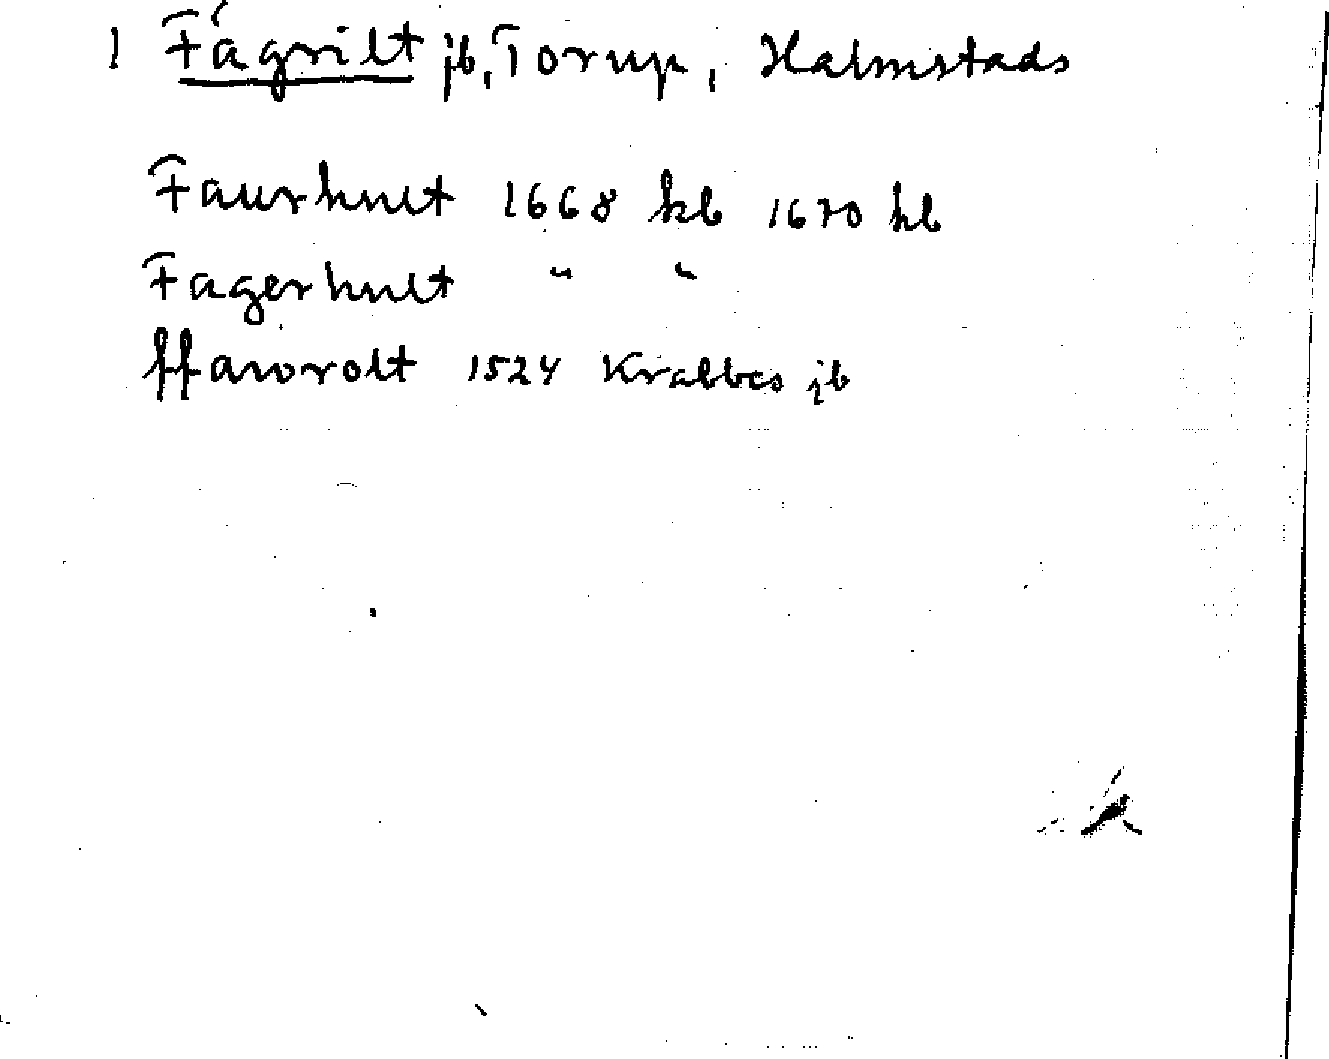 1 Fágrilt jb, Torup, Halmstads
Faurhult 1668 kb 1670 hb
Fagerhult " "
ffaworolt 1524 Krabbes jb